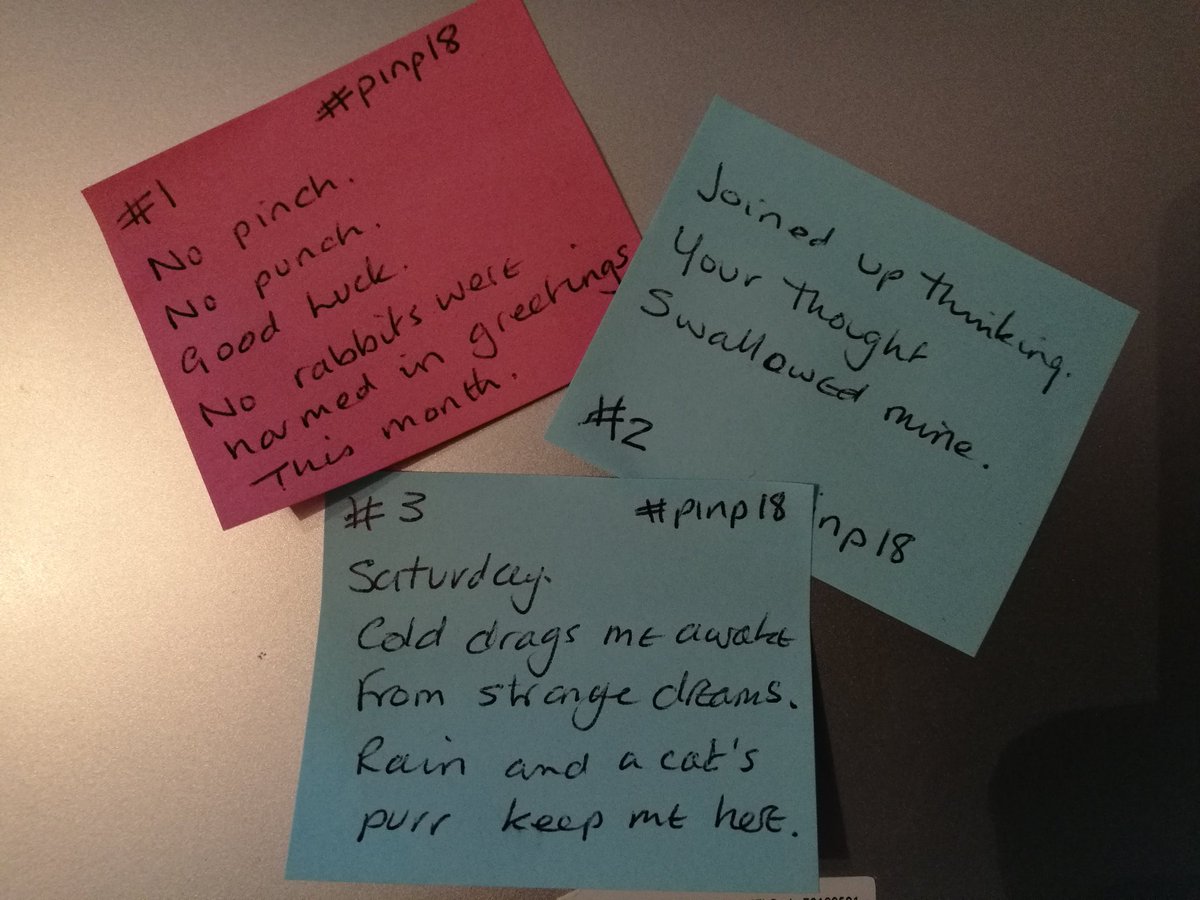 #pinp18
#1
No pinch.
No punch.
Good luck.
No rabbits were
harmed in greetings
This month.
Joined up thinking.
Your thought
Swallowed mine.
#2
inp18
#3 #pinp18
Saturday.
Cold drags me awake
From strange dreams.
Rain and a cat's
purr keep me here.